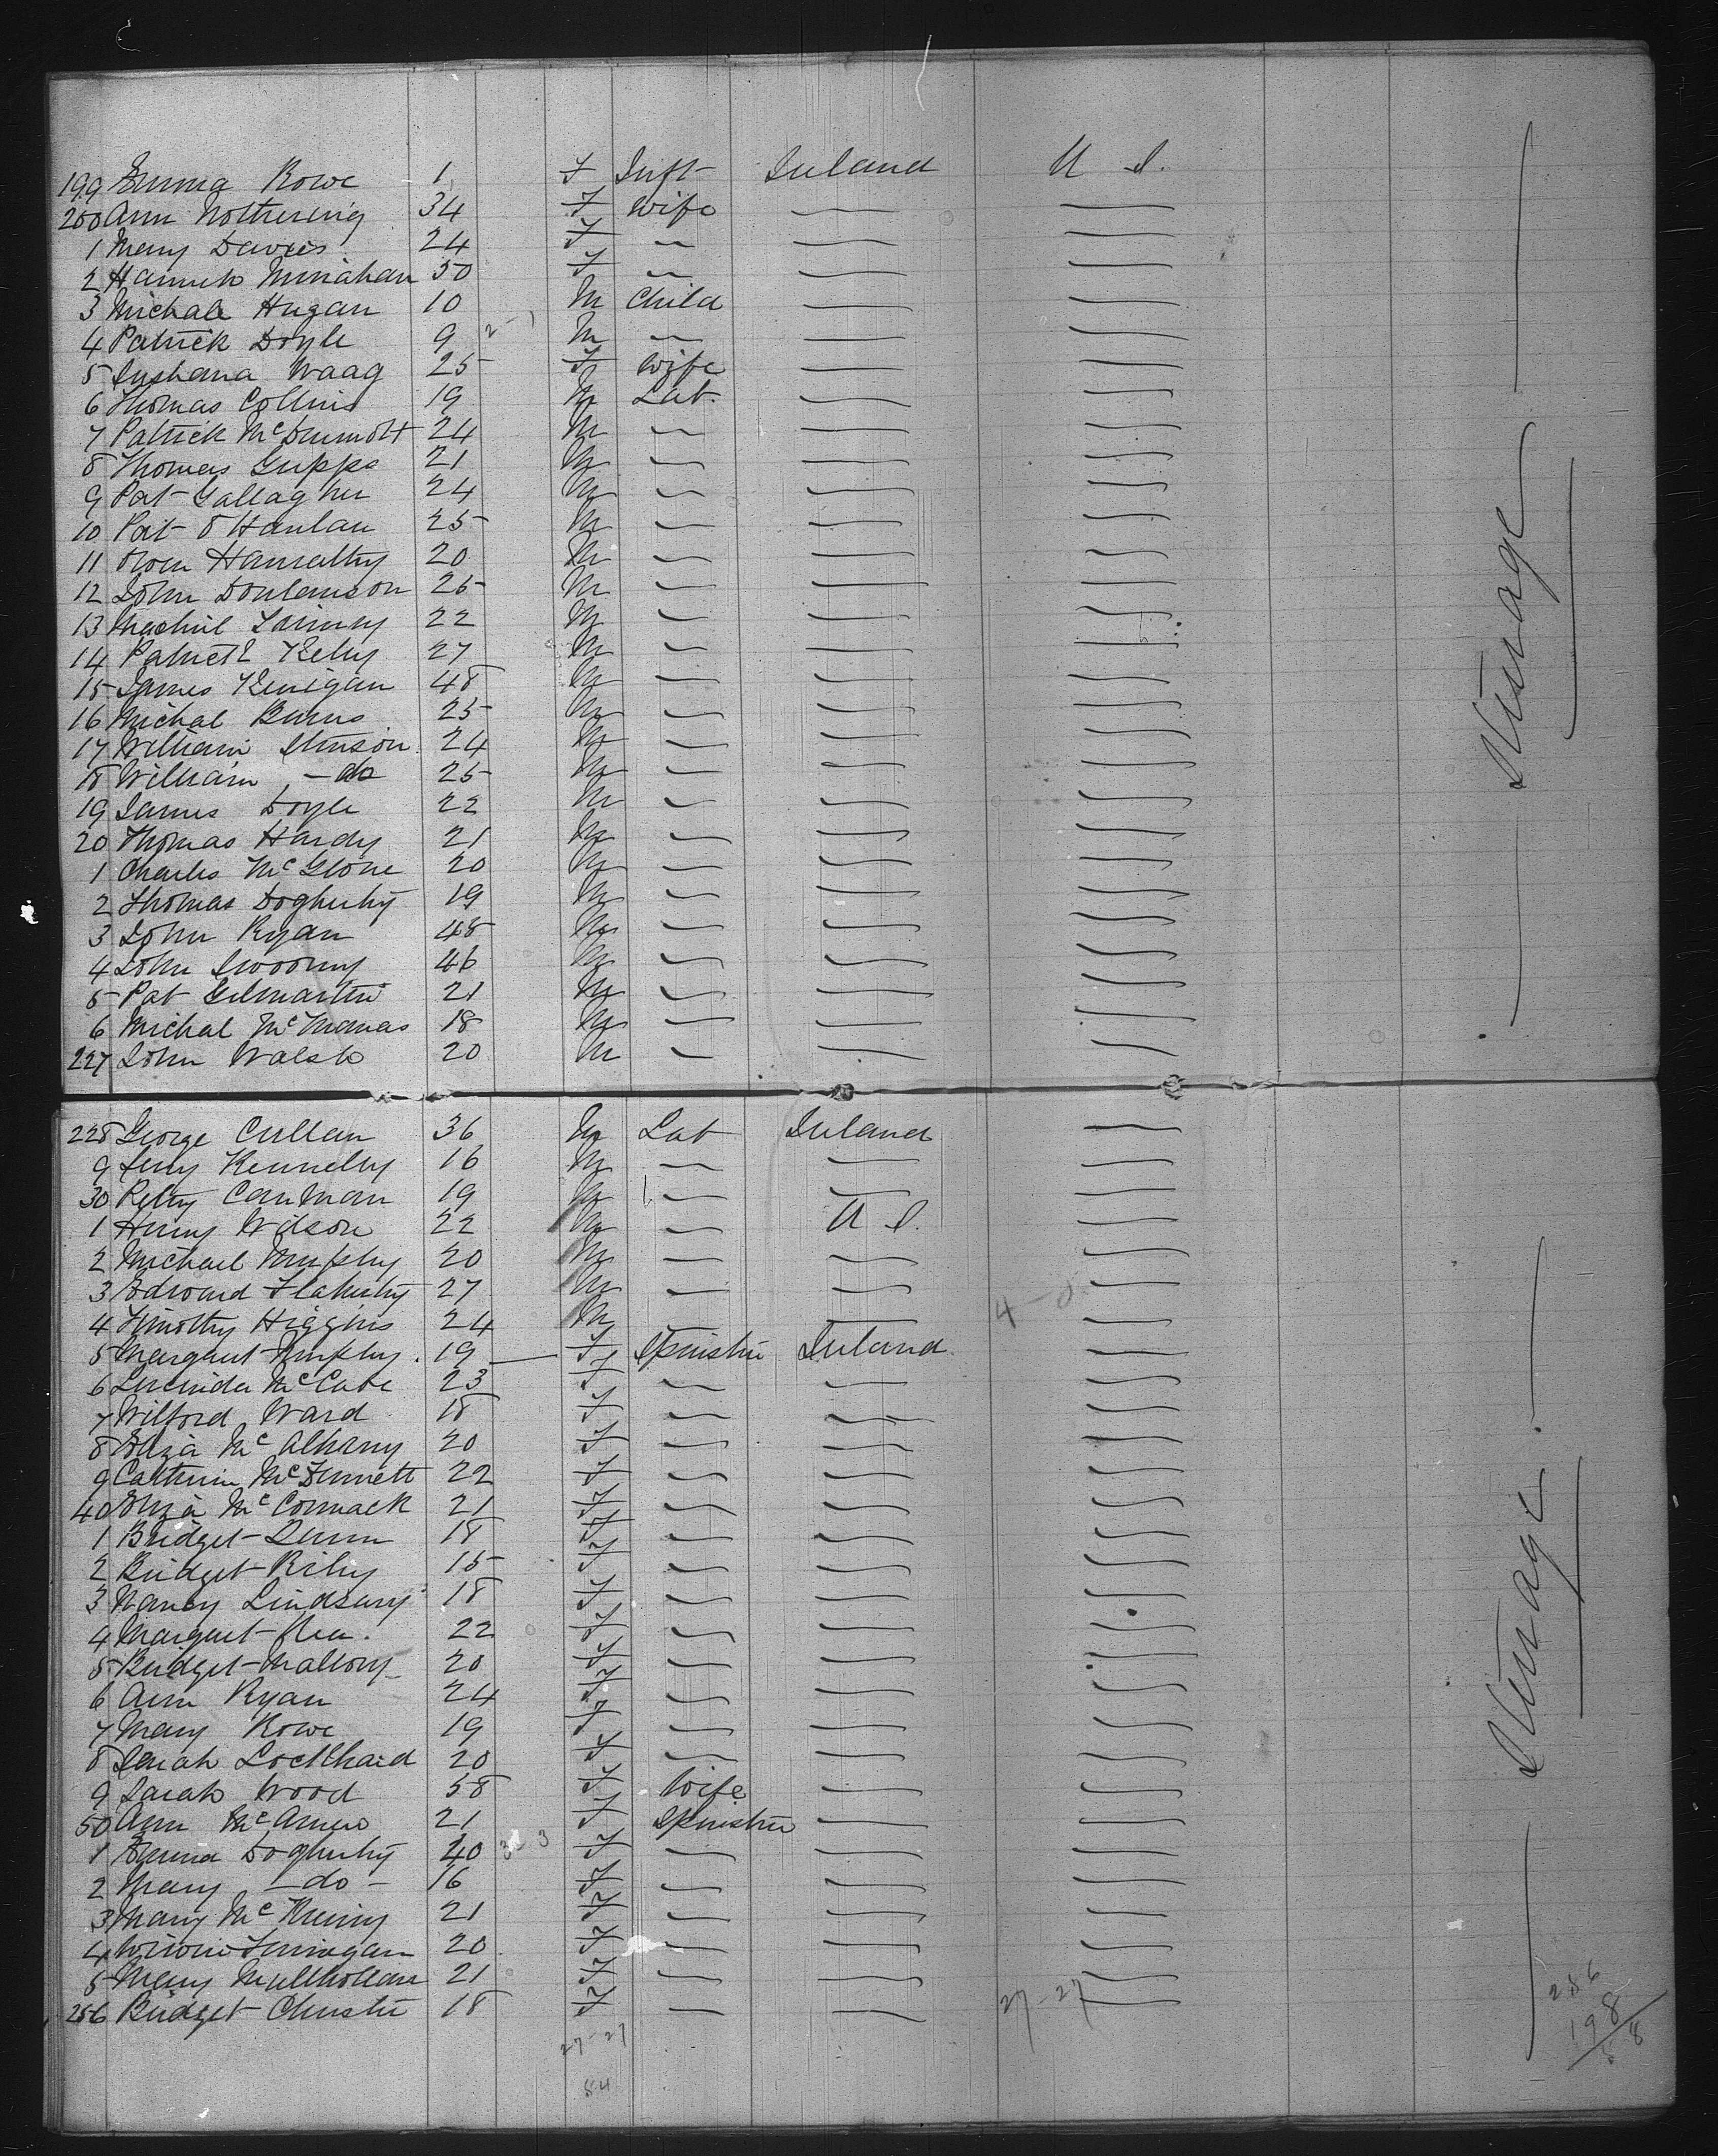 199 Emma Rowe 1 F Inft Ireland U S.
200 Ann Nothering 34 F Wife — —
1 Mary Davies 24 F — — —
2 Hannah Minahan 50 F — — —
3 Michale Hugan 10 M Child — —
4 Patrick Doyle 9 M — — —
5 Sushana Waag 25 F Wife — —
6 Thomas Collins 19 M Lab. — —
7 Patrick McDermott 24 M — — —
8 Thomas Gupps 21 M — — —
9 Pat Gallagher 24 M — — —
10 Pat O Hanlan 25 M — — —
11 Owen Hanratty 20 M — — —
12 John Donlanson 25 M — — —
13 22 M — — —
14 Patrick Kelly 27 M — — —
15 James Kerigan 48 M — — —
16 Michal Burns 25 M — — —
17 William Stinson 24 M — — —
18 William — do 25 M — — —
19 James Doyle 22 M — — —
20 Thomas Hardy 21 M — — —
1 Charles McGlone 20 M — — —
2 Thomas Dogherty 19 M — — —
3 John Ryan 48 M — — —
4 John Swoony 46 M — — —
5 Pat Gilmartin 21 M — — —
6 Michal McManas 18 M — — —
227 John Walsh 20 M — — —
Steerage
228 George Cullan 36 M Lab Ireland —
9 Jerry Kennelly 16 M — — —
30 Canman 19 M — — —
1 Henry Wilson 22 M — U S. —
2 Michael Murphy 20 M — — —
3 Edward Flaherty 27 M — — —
4 Timothy Higgins 24 M — — —
5 Margaret Murphy 19 — F Spinster Ireland —
6 Lucinda McCabe 23 F — — —
7 Wilford Ward 18 F — — —
8 Eliza Mc Alhany 20 F — — —
9 Catherin McDermett 22 F — — —
40 Eliza McCormack 21 F — — —
1 Bridget Dunn 18 F — — —
2 Bridget Riley 15 F — — —
3 Nancy Lindsay 18 F — — —
4 Margaret Shea. 22 F — — —
5 Bridget Mallory 20 F — — —
6 Ann Ryan 24 F — — —
7 Mary Rowe 19 F — — —
8 Sarah Lockhard 20 F — — —
9 Sarah Wood 58 F Wife — —
50 Ann 21 F Spinster — —
1 Emma Dogherty 40 F — — —
2 Mary — do — 16 F — — —
3 Mary 21 F — — —
4 Finnegan 20 F — — —
5 Mary Mullhollan 21 F — — —
256 Bridget Christie 18 F — — —
Steerage
27-27
27-27
54
256
198
58